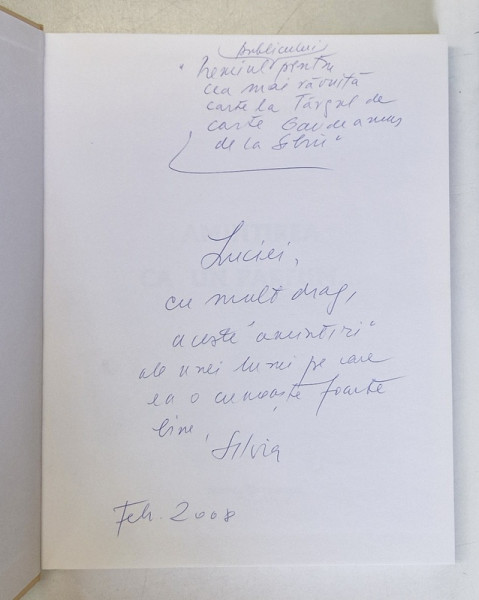 Publicului
"Premiul pentru
cea mai râvnită
carte la Târgul de
carte Gaudeamus
de la Sibiu"
Luciei,
cu mult drag,
aceste "amintiri"
ale unei lumi pe care
ea o cunoaște foarte
bine,
Silvia
Feb. 2008